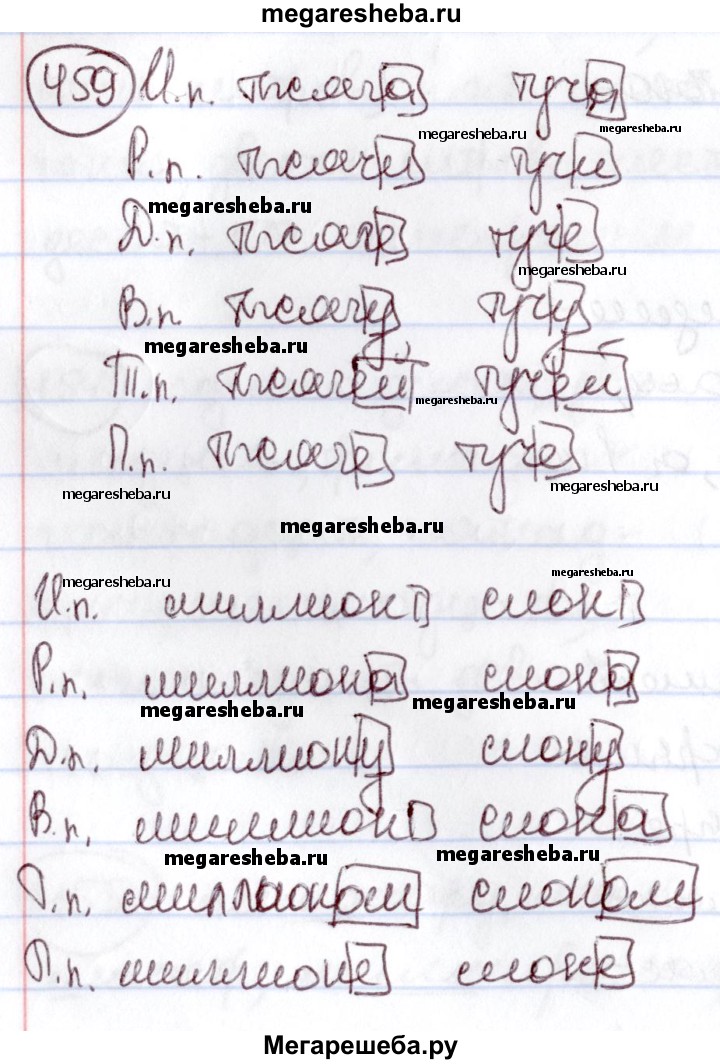 megaresheba.ru
459 И.п. тысяча туча
megaresheba.ru megaresheba.ru
Р.п. тысячи тучи
megaresheba.ru
Д.п. тысяче туче
megaresheba.ru
В.п. тысячу тучу
megaresheba.ru
Т.п. тысячей тучей
megaresheba.ru
П.п. тысяче туче
megaresheba.ru megaresheba.ru
megaresheba.ru
megaresheba.ru megaresheba.ru
И.п. миллион слон
Р.п. миллиона слона
megaresheba.ru megaresheba.ru
Д.п. миллиону слону
В.п. миллион слона
megaresheba.ru megaresheba.ru
Т.п. миллионом слоном
П.п. миллионе слоне
Мегарешеба.ру